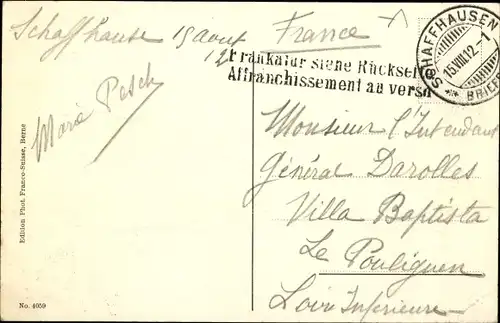 Schaffhouse 15 aout
12
Maria Pesch
France
Frankatur siehe Rückseite
Affranchissement au verso
SCHAFFHAUSEN
15.VIII.12.-1
BRIEF
Monsieur l'Intendant
Général Darolles
Villa Baptista
Le Pouliguen
Loire Inférieure
Edition Phot. Franco-Suisse, Berne
No. 4059